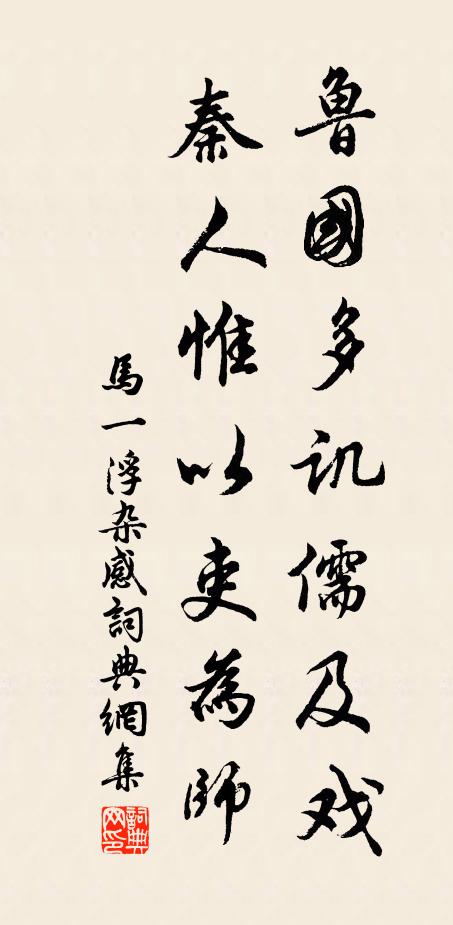 魯國多訊儒及戏
秦人惟以吏為師
馬一浮杂感詞典網集
詞典網印